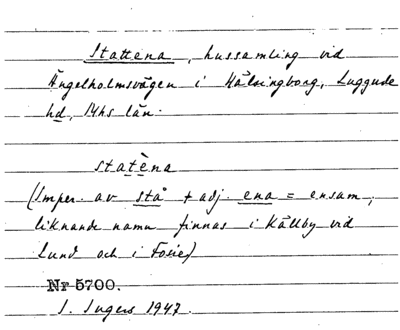 Stattena, hussamling vid
Ängelholmsvägen i Hälsingborg, Luggude
hd, Mhs län.
statèna
(Imper. av stå + adj. ena = ensam;
liknande namn finnas i Källby vid
Lund och i Fosie)
Nr 5700.
I. Ingers 1947.